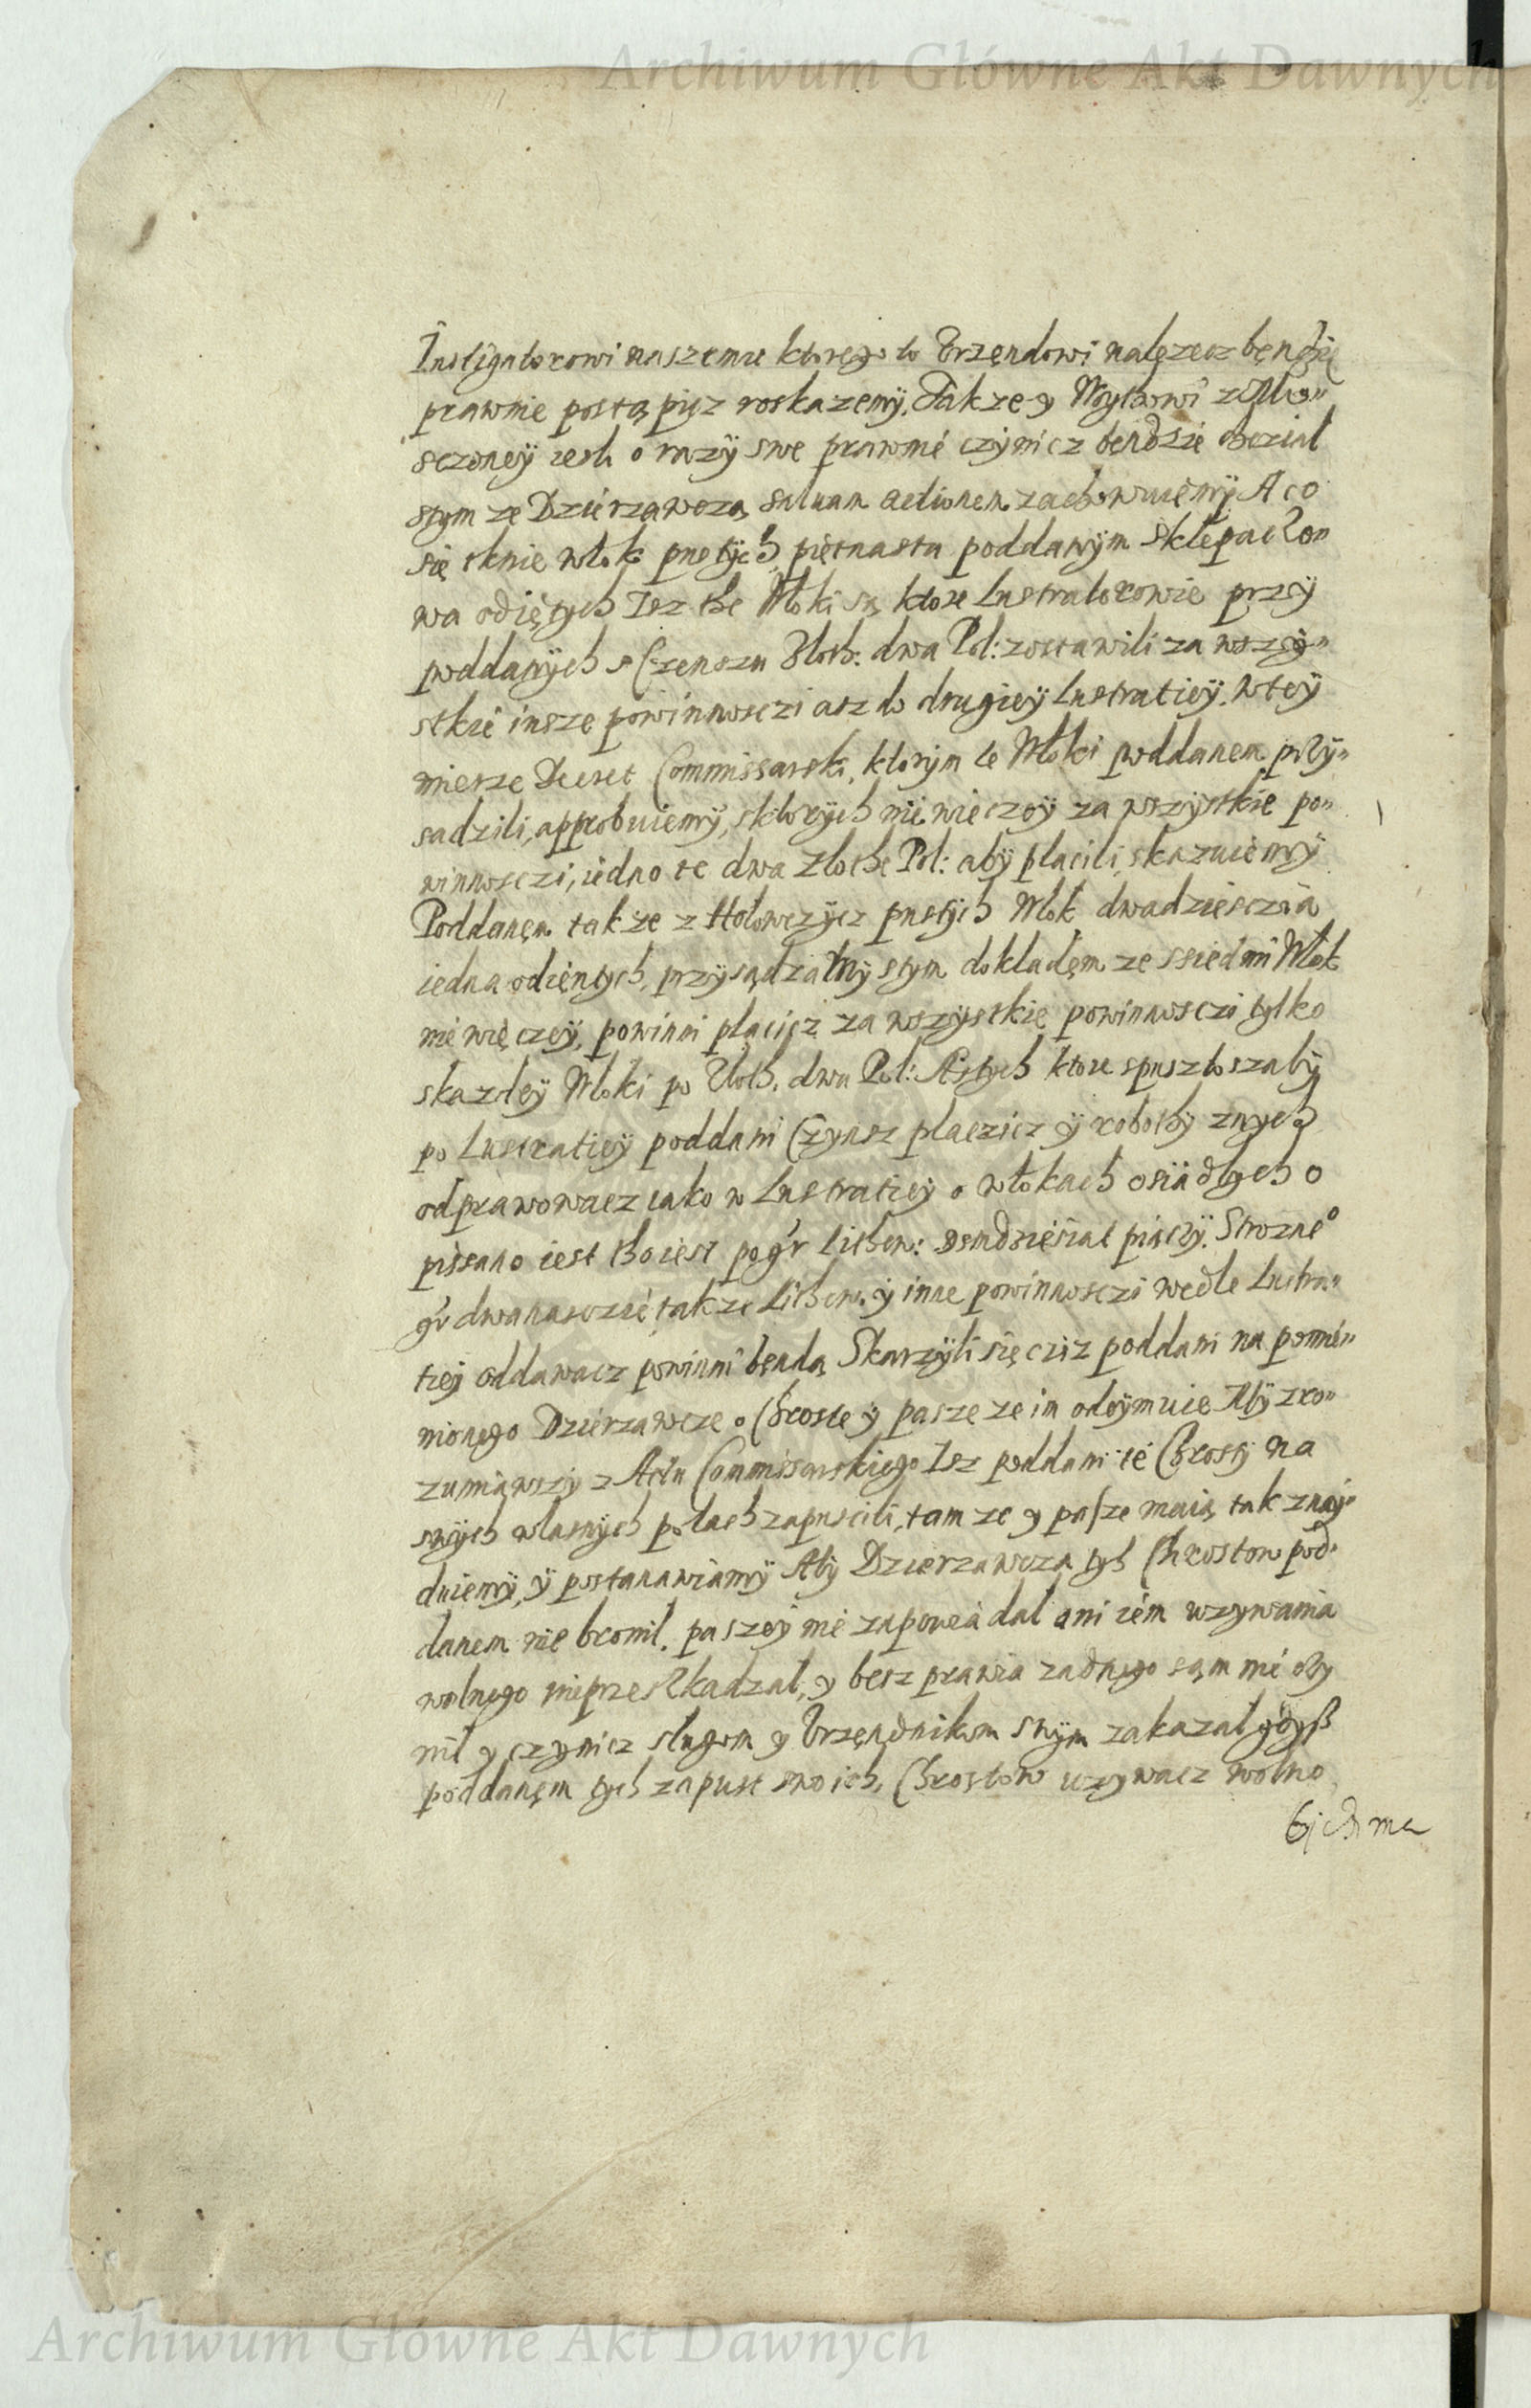 Archiwum Główne Akt Dawnych
Instigatorowi naszemu ktorego to Vrzendowi nalęzecz bęndzie
prawnie postąpicz roskazemÿ. Także y Woÿtowi
sczoneÿ iesli o razÿ swe prawnie czÿnicz bendzie chczial
stym ze Dzierzawczą saluam actionem zachowuiemÿ. A co
się tknie włok pustÿch piętnastu poddanÿm Sklepaczo„
wa odiętych Isz the Włoki są ktore Lustratorowie przÿ
poddanÿch s Czenszu Zloth: dwa Pol: zostawili za wszÿ„
stkie insze powinnosczi asz do drugieÿ Lustratieÿ. w teÿ
mierze Decret Commissarski, ktorÿm te Włoki poddanem przÿ„
sadzili, approbuiemÿ, sktorÿch nie wieczeÿ za wszÿstkie po„
winnosczi, iedno te dwa Zlothe Pol: abÿ placili, skazuiemÿ
Poddanem także z Hołowczÿcz pustÿch Włok dwadziesczia
iedna odiętych, przÿsądzamÿ stym dokladęm ze ssiedmi Włok
nie więczeÿ, powinni płacicz za wszystkie powinnosczi tylko
skazdeÿ Włoki po Zloth. dwu Pol: A stych ktore spusztoszałÿ
po Lustratieÿ poddani Czynsz placzicz ÿ robothÿ znych
odprawowacz iako w Lustratieÿ o włokach osiadłych o
pissano iest tho iest po gr Lithew: osmdziesiat piączÿ. Strozneo
gr dwanasczie, także Lithew. ÿ inne powinnosczi wedle Lustra„
tieÿ oddawacz powinni będą Skarzÿli się cziz poddani na pomie„
nionego Dzierzawcze o Chroste ÿ pasze ze im odeÿmuie Mÿ zro„
zumiawszÿ z Actu Commissarskiego Isz poddani te Chrostÿ na
swÿch własnÿch polach zapuscili, tam ze y pasze maią, tak znaÿ„
duiemÿ, ÿ postanawiamÿ Abÿ Dzierzawcza tych Chrostow pod„
danem nie bronił. paszeÿ nie zapowiadał ani iem wzywania
wolnego nieprzeszkadzał, y besz prawia zadnego sam nie czÿ
nil y czynicz sługom y Vrzędnikom swÿm zakazał gdÿsz
poddanęm tych zapust swoich, Chrostow uzywacz wolno
bÿcz ma
Archiwum Główne Akt Dawnych